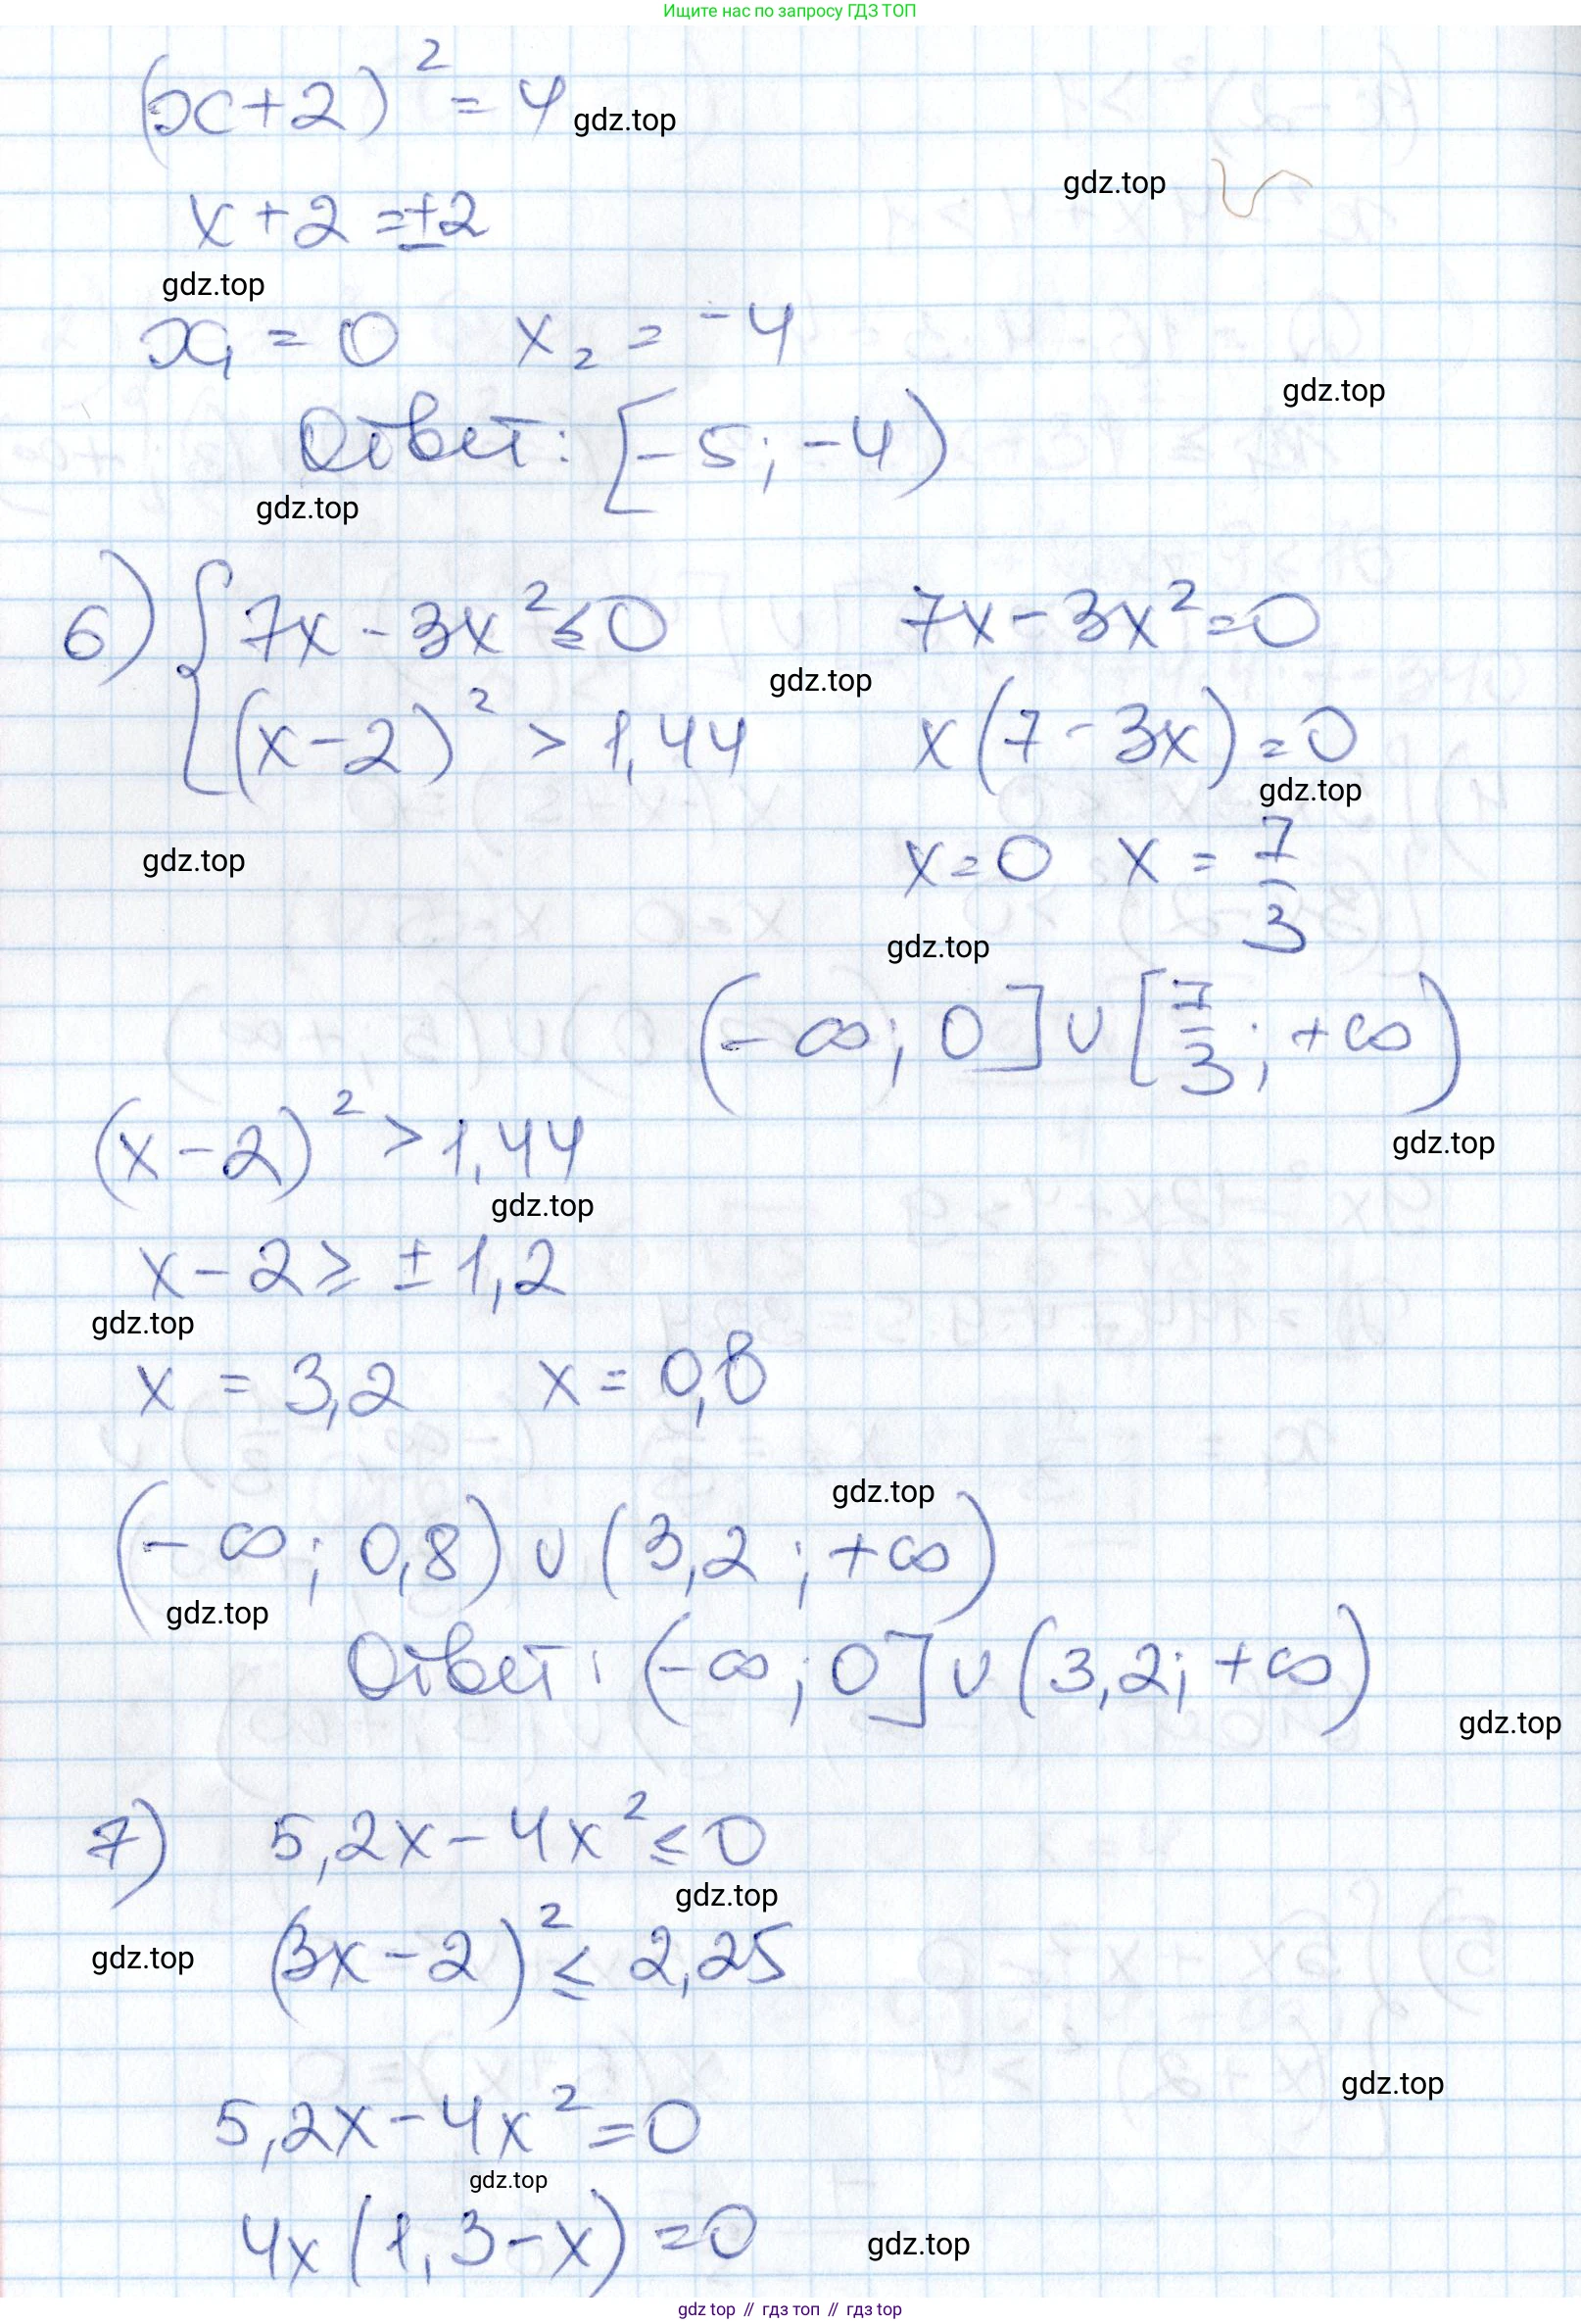 Ищите нас по запросу ГДЗ ТОП
(x+2)² = 4
gdz.top
gdz.top
x+2 = ±2
gdz.top
x₁ = 0 x₂ = -4
gdz.top
Ответ: [-5; -4)
gdz.top
6) { 7x - 3x² ≤ 0 7x - 3x² = 0
gdz.top
(x-2)² > 1,44 x(7-3x) = 0
gdz.top
gdz.top
x = 0 x = 7/3
gdz.top
(-∞; 0] ∪ [7/3; +∞)
gdz.top
(x-2)² > 1,44
gdz.top
x-2 ≥ ±1,2
gdz.top
x = 3,2 x = 0,8
gdz.top
(-∞; 0,8) ∪ (3,2; +∞)
gdz.top
Ответ: (-∞; 0] ∪ (3,2; +∞)
gdz.top
7) 5,2x - 4x² ≤ 0
gdz.top
(3x-2)² ≤ 2,25
gdz.top
gdz.top
5,2x - 4x² = 0
gdz.top
4x(1,3-x) = 0
gdz.top
gdz top // гдз топ // гдз top